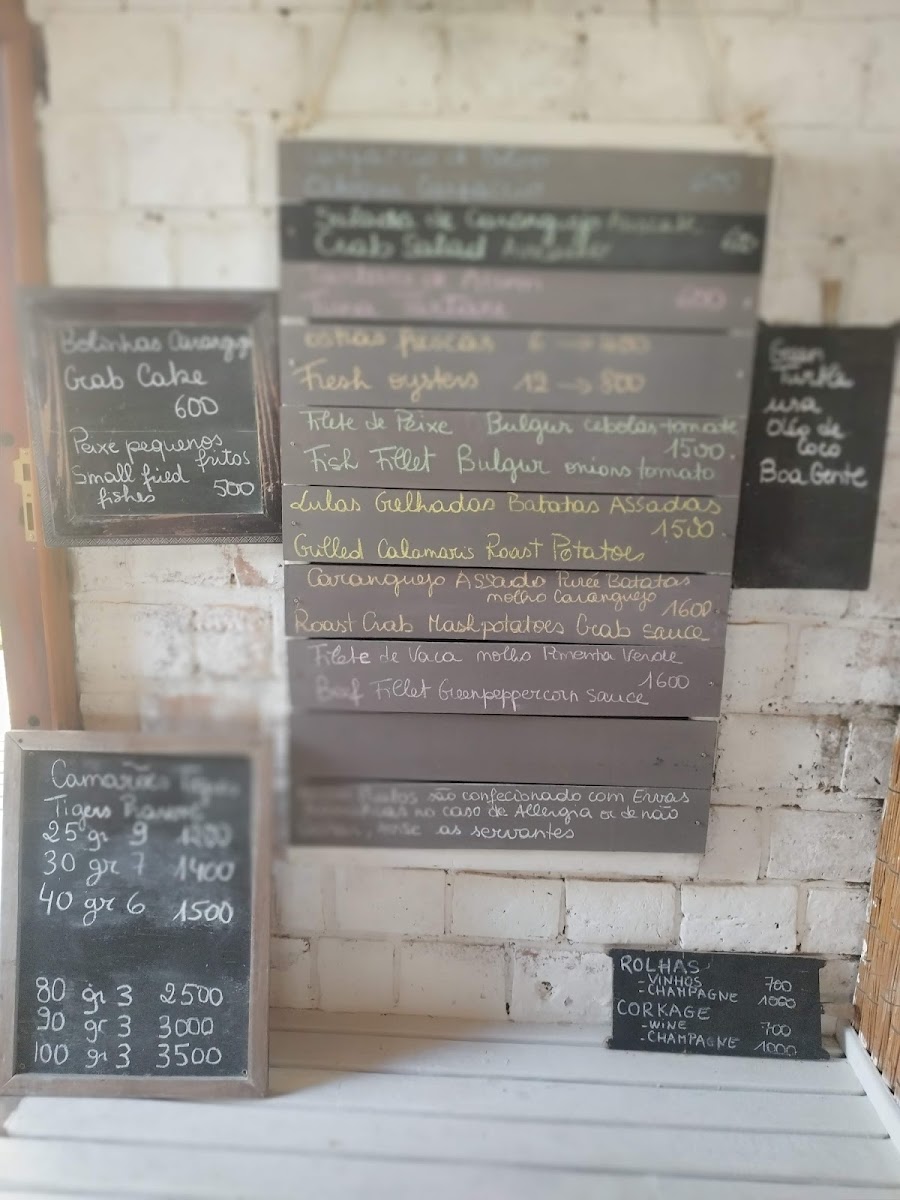 600
Salada de Caranguejo
Crab Salad
600
Ostras frescas 6 → 400
Fresh oysters 12 → 800
Filete de Peixe Bulgur cebolas tomate
1500
Fish Fillet Bulgur onions tomato
Lulas Grelhadas Batatas Assadas
1500
Grilled Calamaris Roast Potatoes
Caranguejo Assado Pureé Batatas
molho Caranguejo
1600
Roast Crab Mashpotatoes Crab sauce
Filete de Vaca molho Pimenta Verde
1600
Beef Fillet Greenpeppercorn sauce
são confecionado com Ervas
no caso de Allergia or de não
as servantes
Bolinhas
Crab Cake
600
Peixe pequenos
fritos
Small fried
fishes 500
Green
Turtle
usa
Óleo de
Coco
Boa Gente
Camarões
Tigers
25 gr 9 1200
30 gr 7 1400
40 gr 6 1500
80 gr 3 2500
90 gr 3 3000
100 gr 3 3500
ROLHAS
- VINHOS 700
- CHAMPAGNE 1000
CORKAGE
- WINE 700
- CHAMPAGNE 1000